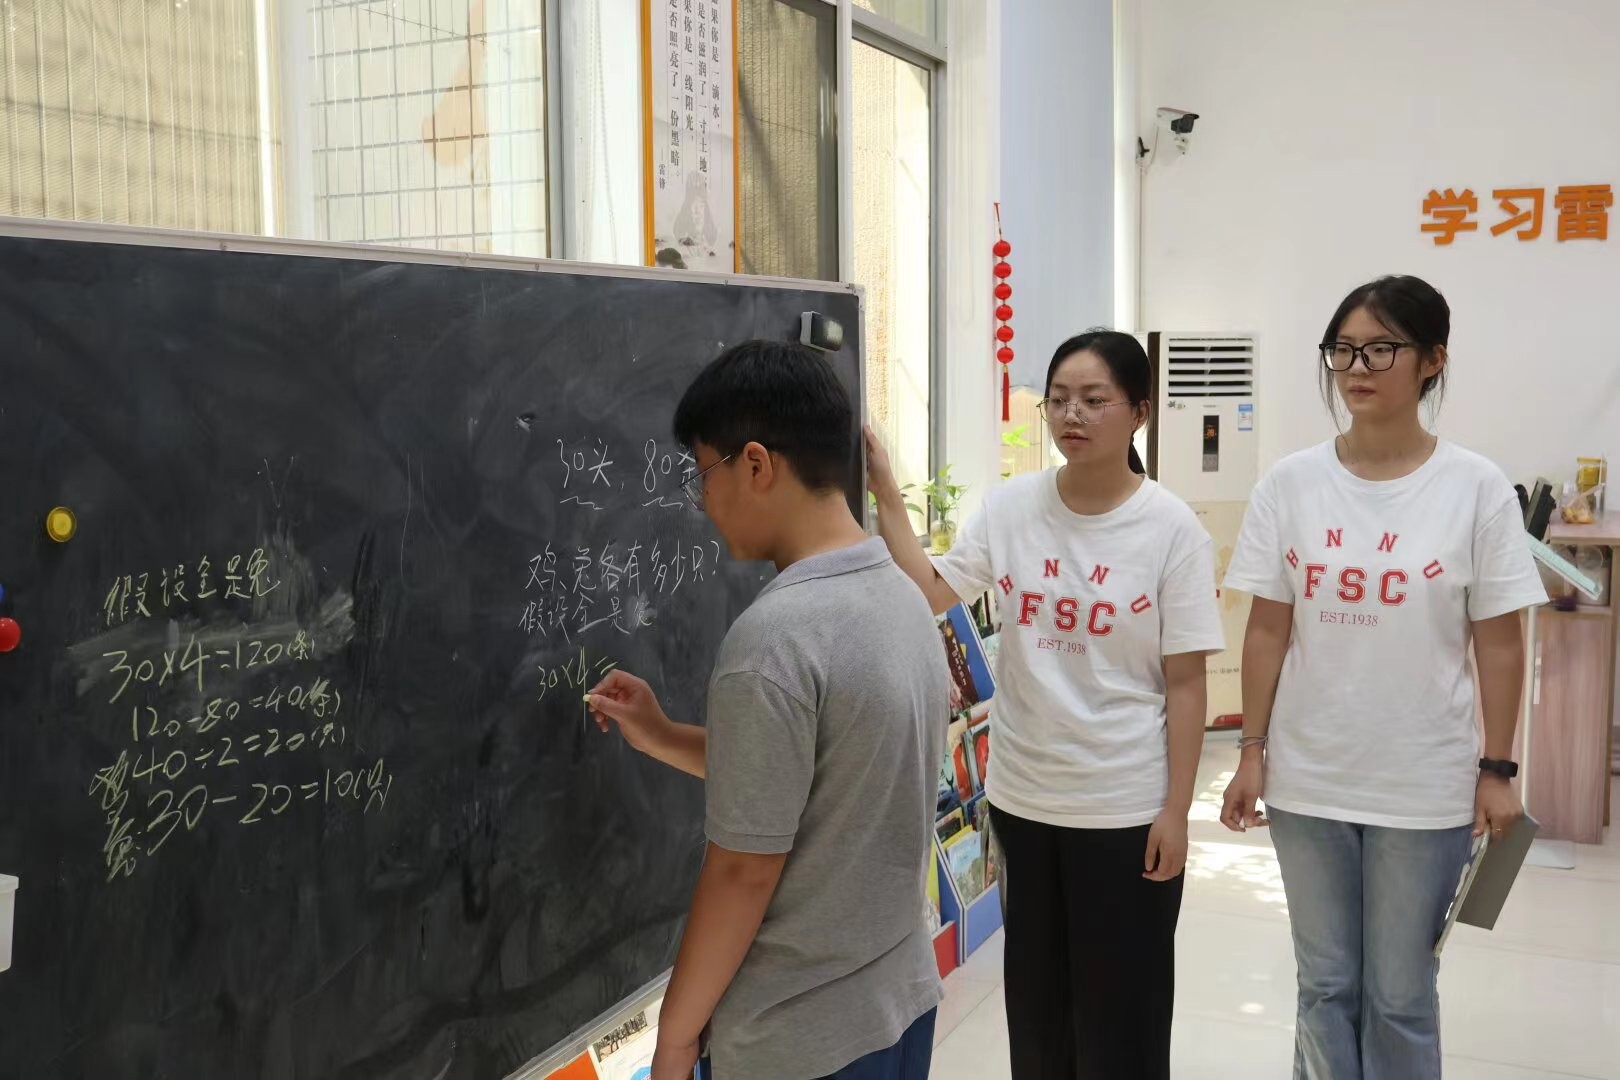 果你是一滴水，
是否滋润了一寸土地
果你是一线阳光，
是否照亮了一份黑暗。
——雷锋
学习雷
30头，80条
鸡、兔各有多少只？
假设全是兔
30×4=
假设全是兔
30×4=120(条)
120-80=40(条)
鸡40÷2=20(只)
兔:30-20=10(只)
HNNU
FSC
EST.1938
HNNU
FSC
EST.1938